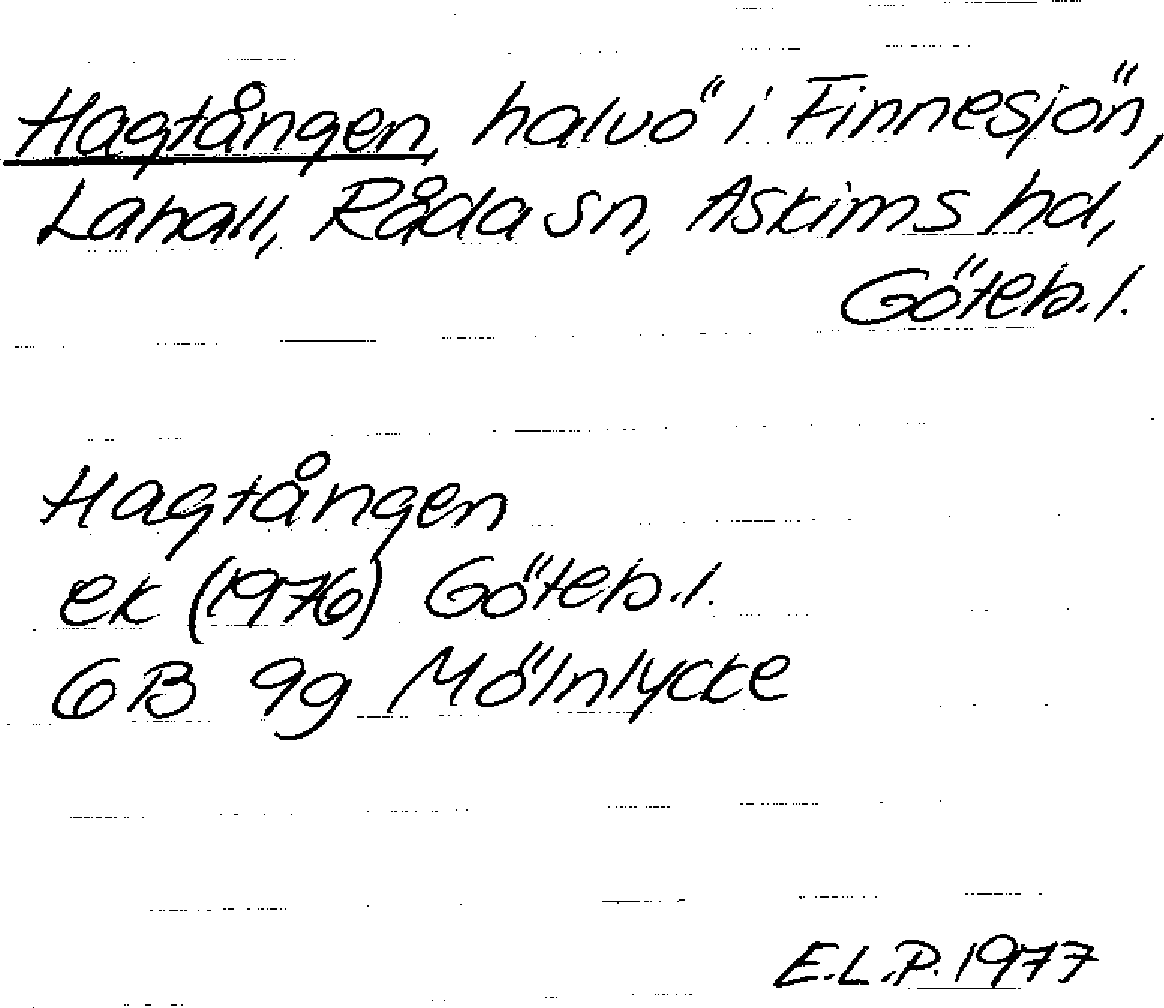 Hagtången, halvö i Finnesjön,
Lahall, Råda sn, Askims hd,
Göteb.l.
Hagtången
ek (1976) Göteb.l.
6B 9g Mölnlycke
E.L.P. 1977